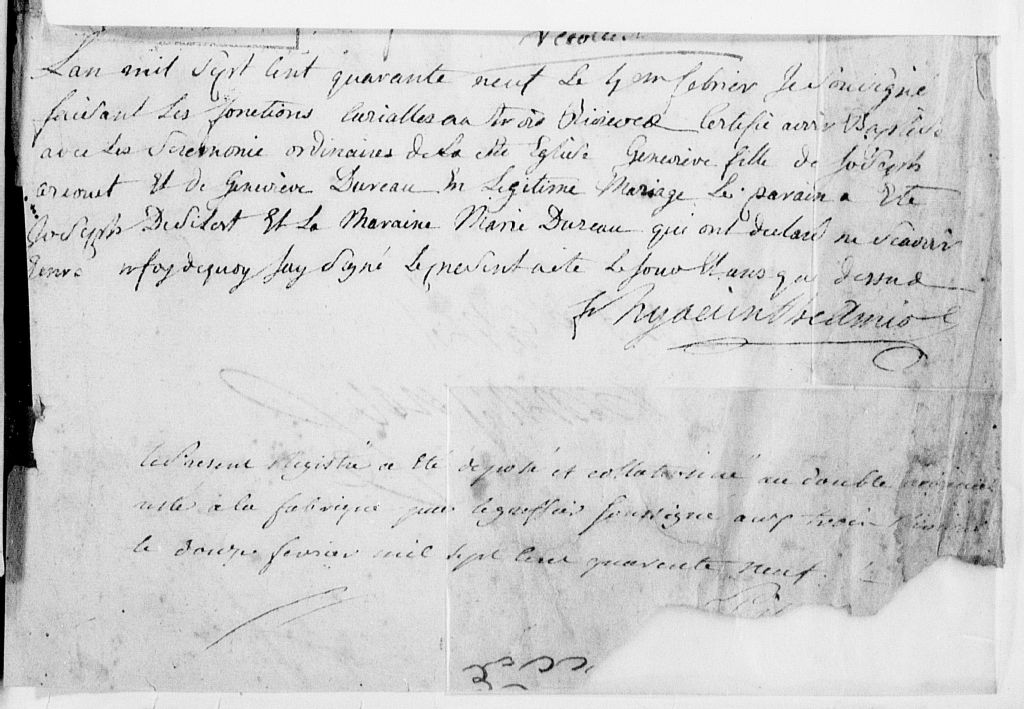 Recollect
Lan mil Sept Cent quarante neuf Le 4me febrier Je Soussigné
faisant Les fonctions Curialles au trois Rivieres Certifie avoir Baptisé
avec Les Seremonie ordinaires de La Ste Eglise Genevieve fille de Joseph
et de Genevieve Dureau En Legitime Mariage Le parain a Ete
Joseph Desilest Et La Maraine Marie Dureau qui ont declare ne Scavoir
enfoy dequoy Jay Signé Le present acte Le Jour Et ans que dessus
fr hyacinthe Amiot
le Present Registre a Eté deposé et collationné au double
reste a la fabrique par le greffier soussigné aux trois
le douze fevrier mil sept cent quarente neuf.